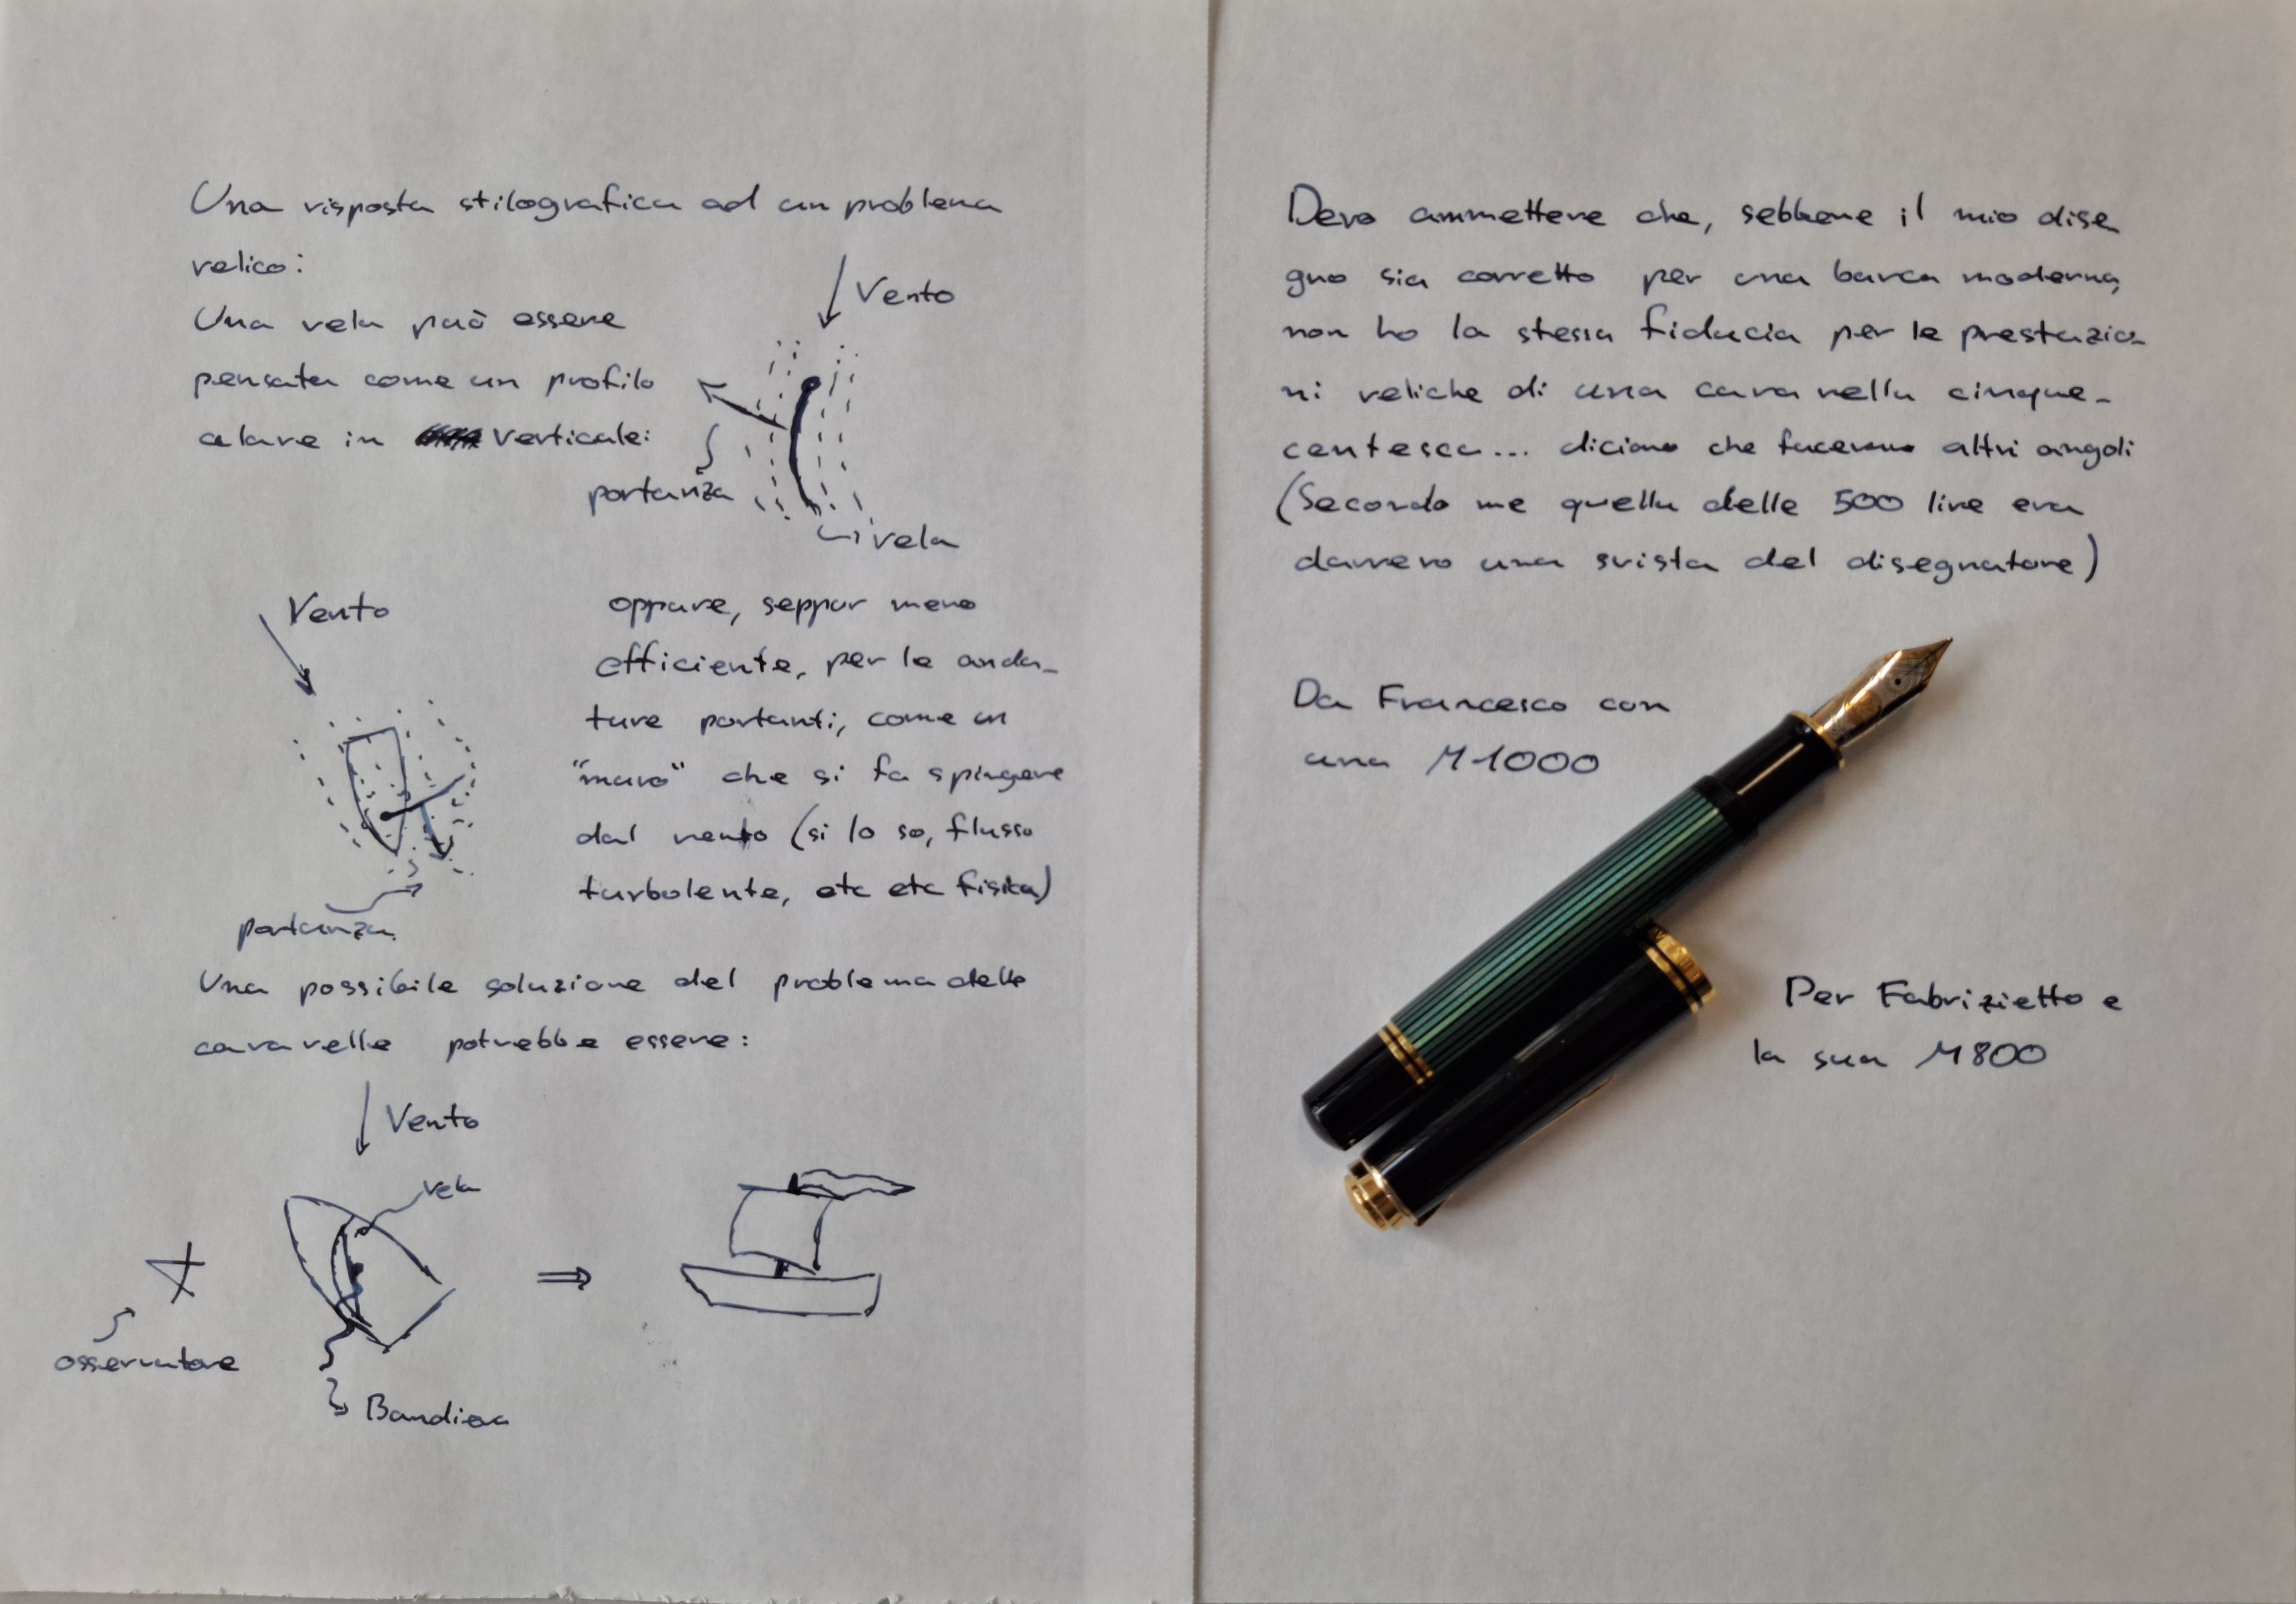 Una risposta stilografica ad un problema
velico:
Vento
Una vela può essere
pensata come un profilo
alare in verticale:
portanza
vela
Vento
oppure, seppur meno
efficiente, per le anda-
ture portanti, come un
"muro" che si fa spingere
dal vento (si lo so, flusso
turbolente, etc etc fisica)
portanza
Una possibile soluzione del problema delle
caravelle potrebbe essere:
Vento
vela
osservatore
Bandiera
Devo ammettere che, sebbene il mio dise
gno sia corretto per una barca moderna,
non ho la stessa fiducia per le prestazio-
ni veliche di una caravella cinque-
centesca... diciamo che facevano altri angoli
(Secondo me quella delle 500 lire era
davvero una svista del disegnatore)
Da Francesco con
una M1000
Per Fabrizietto e
la sua M800